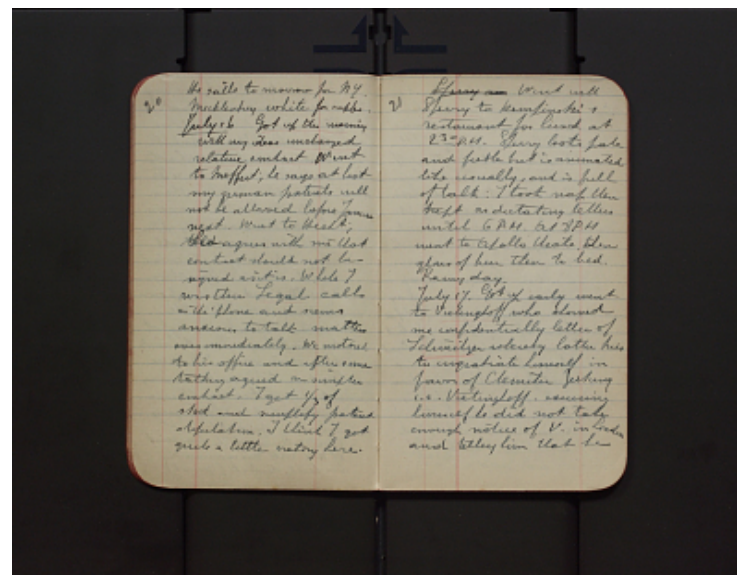 20
He sails to morrow for N.Y.
Mecklenburg white for
July 16 Got up this morning
with my ideas unchanged
relative contract Went
to Moffert, he says at last
my german patents will
not be allowed before
next. Went to
agrees with me that
contract should not be
signed as it is. While I
was there Legal calls
on the 'phone and seems
anxious to talk matter
over immediately. We motored
to his office and after some
talking agreed on simpler
contract. I get 1/3 of
and patent
stipulation. I think I got
quite a little victory here.
21
Went with
Sperry to Kempinski's
restaurant for lunch at
2 30 P.M. Sperry looks pale
and feeble but is animated
like usually, and is full
of talk. I took nap then
kept on dictating letters
until 6 P.M. At 8 P.M
went to Apollo theatre, then
glass of beer then to bed.
Rainy day.
July 17. Got up early went
to Vietinghoff who showed
me confidentially letter of
whereby latter tries
to ingratiate himself in
favor of
i.e. Vietinghoff. excusing
himself he did not take
enough notice of V. in London
and telling him that he